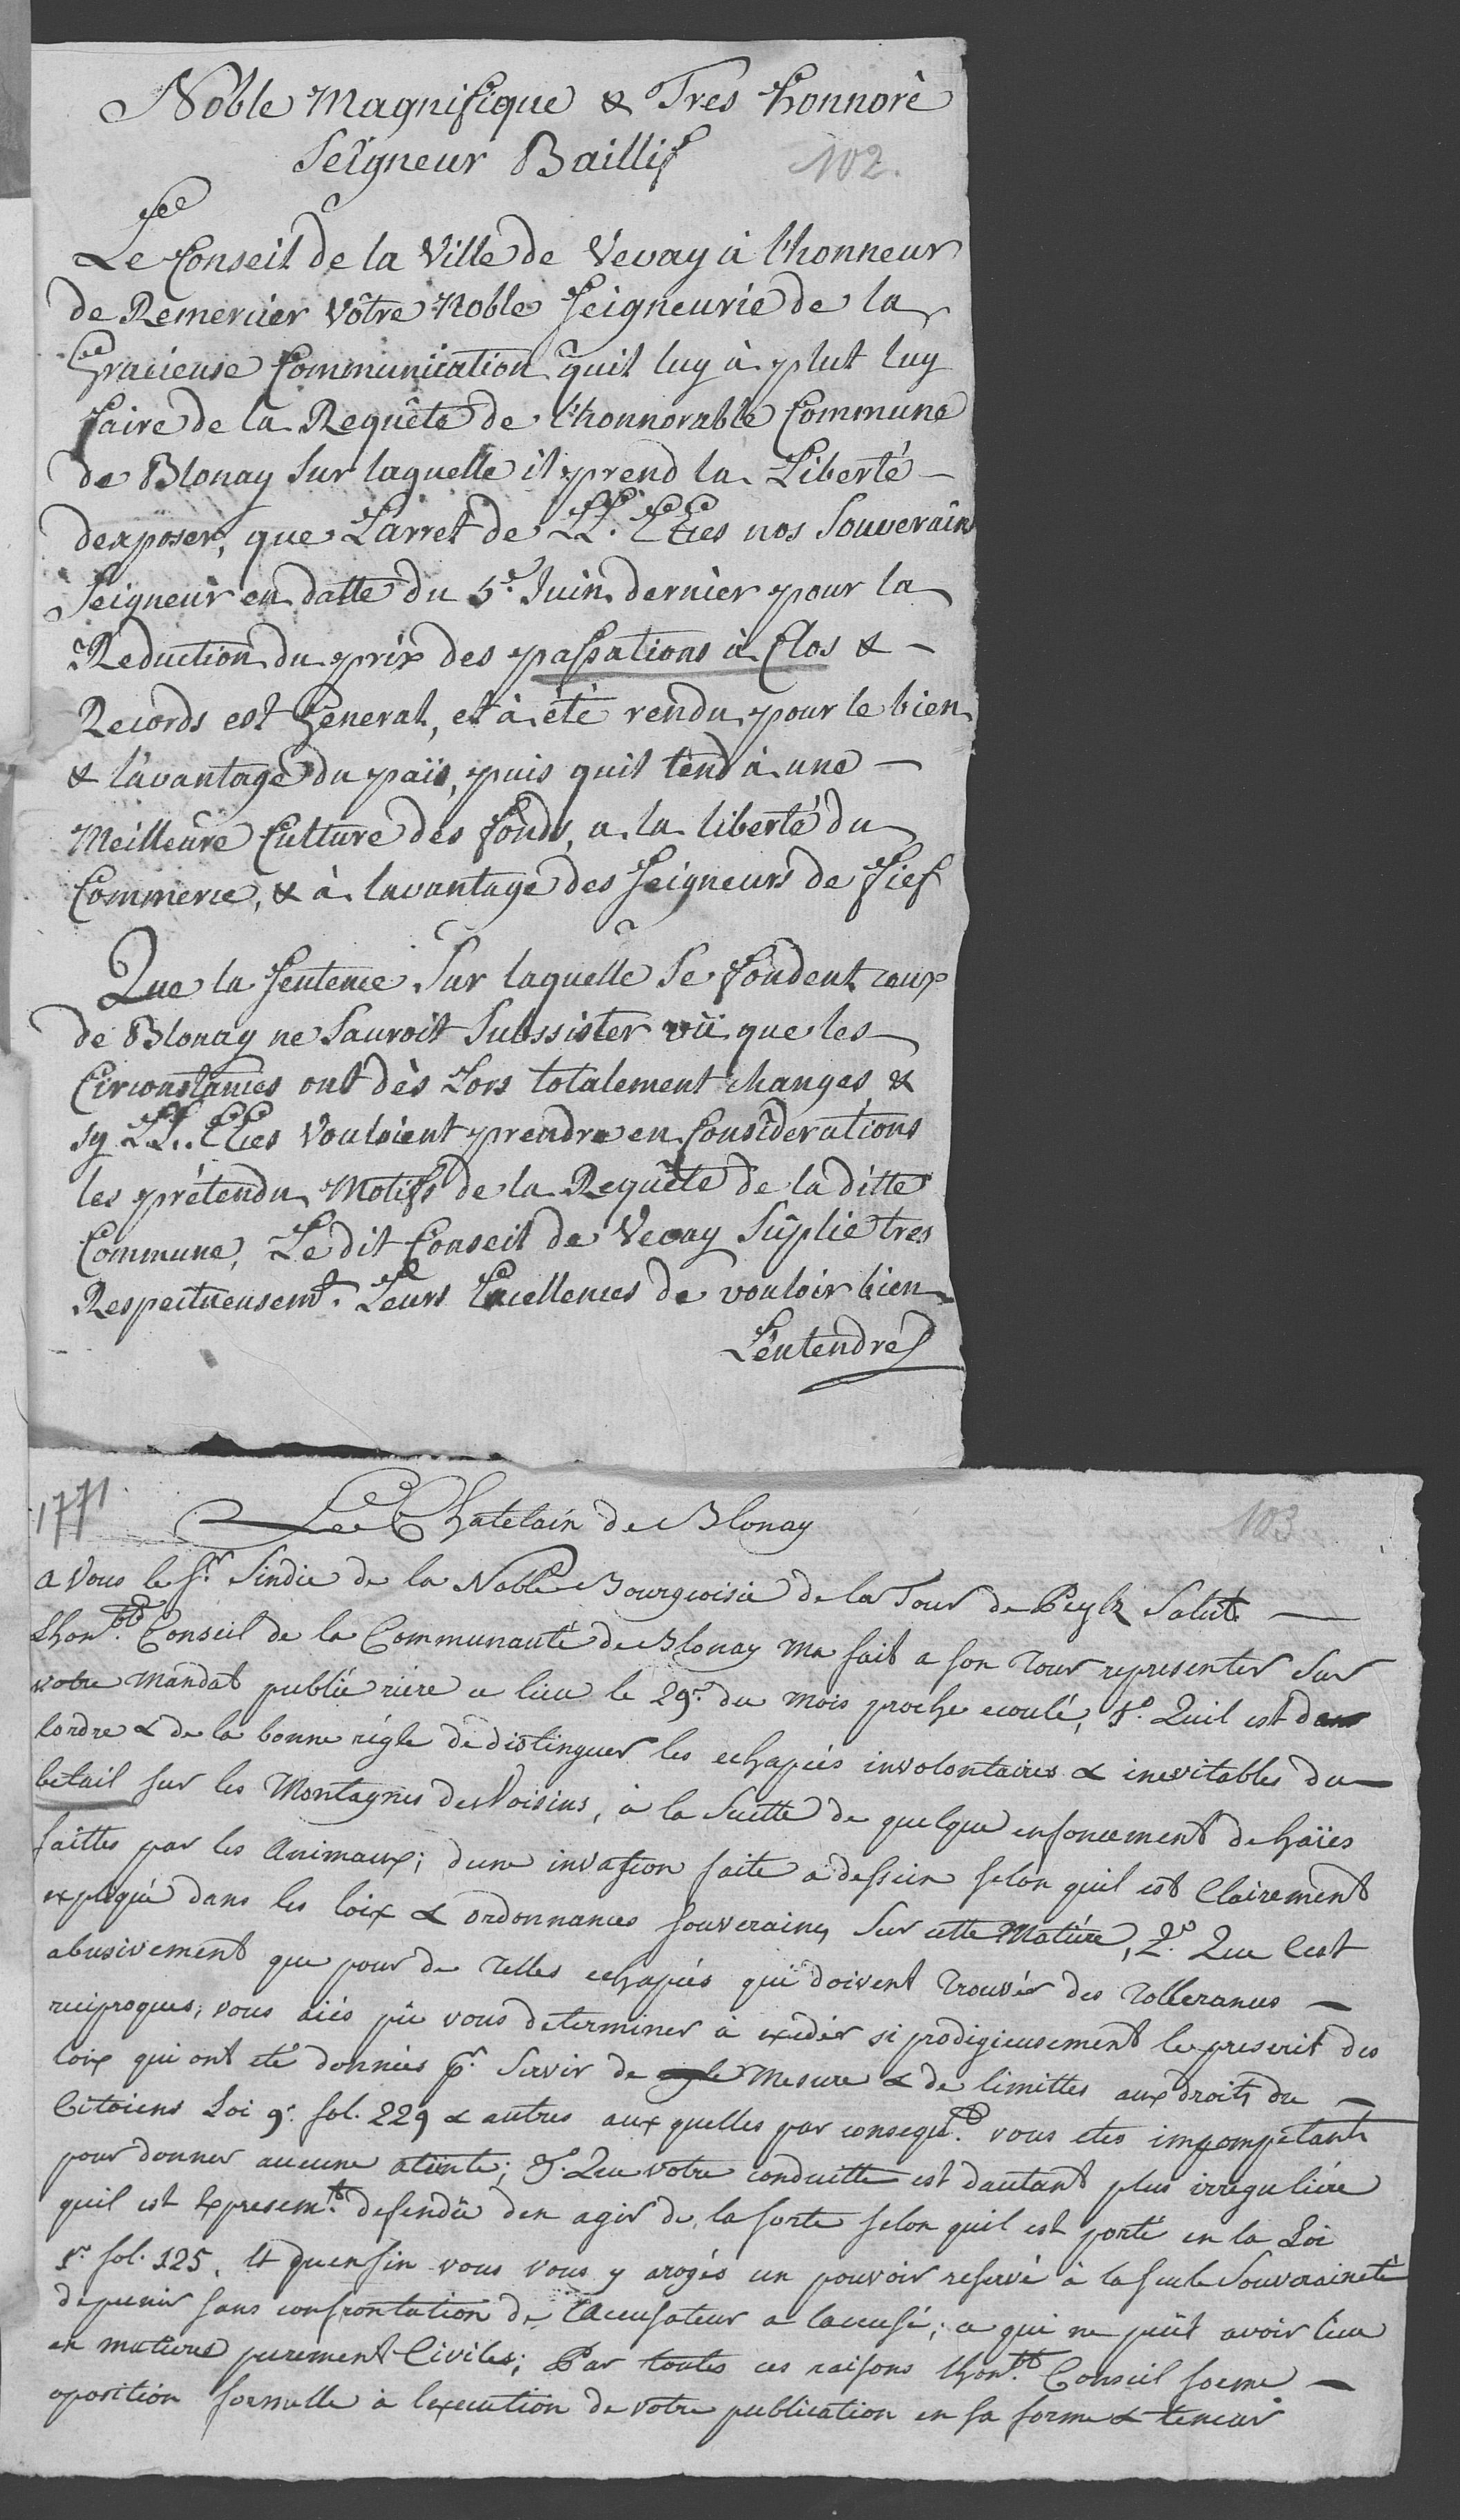 Noble Magnifique & Tres honnoré
Seigneur Baillif
102.
Le Conseil de la Ville de Vevay à l'honneur
de Remercier Vôtre Noble Seigneurie de la
Gracieuse Communication quil luy à plut luy
faire de la Requête de l'honnorable Commune
de Blonay Sur laquelle il prend la Liberté –
dexposer, que Larret de LL. EEces nos Souverains
Seigneur en datte du 5e. Juin dernier pour la
Reduction du prix des passations à Clos & –
Records est General, et à été rendu pour le bien
& lavantage du païs, puis quil tend à une –
Meilleure Culture des fonds, a la liberté du
Commerce, & à lavantage des Seigneurs de fief
Que la Sentence Sur laquelle Se fondent ceux
de Blonay ne Sauroit Subssister vü que les
Circonstances ont dès Lors totalement changes, &
sy LL. EEces Vouloient prendre en Considerations
les prétendu Motifs de la Requête de la ditte
Commune, Le dit Conseil de Vevay Suplie tres
Respectueusemt. Leurs Excellences de vouloir bien
Lentendre
1771
Le Chatelain de Blonay
103
a Vous le Sr. Sindic de la Noble Bourgeoisie de la Tour de Peylz Salut –
Lhonble. Conseil de la Communauté de Blonay ma fait a son Tour representer Sur
votre Mandat publié riere ce lieu le 29e. du mois proche ecoulé, 1o. Quil est dans
lordre & de la bonne régle de distinguer les echapées involontaires & inevitables du –
betail sur les Montagnes des Voisins, à la Suitte de quelque enfoncement de haïes
faittes par les Animaux; dune invasion faite a dessein selon quil est Clairement
expliqué dans les loix & ordonnances souveraines Sur cette Matiére, 2o. Que Cest
abusivement que pour de Telles echapées qui doivent Trouvér des Tollerances –
reciproques, vous aiés pû vous determiner à exedér si prodigieusement le prescrit des
loix qui ont eté données pr. Servir de Mesure & de limittes aux droits du –
Citoiens Loi 9e. fol. 229 & autres aux quelles par consequt. vous etes impompetants
pour donner aucune atteinte; 3o. Que votre conduitte est dautant plus irreguliére
quil est Expresemt. defendü den agir de la sorte selon quil est porté en la Loi
1e. fol. 125. Et quenfin vous vous y arogés un pouvoir reservé à la seule Souveraineté
de punir sans confrontation de lAccusateur a laccusé; ce qui ne peüt avoir lieu
en matieres purement Civiles; Par toutes ces raisons lhonble. Conseil forme –
oposition formelle à lexecution de votre publication en sa forme & teneur